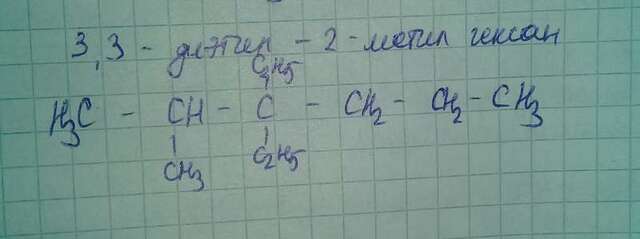 3,3 - диэтил - 2 - метил гексан
C2H5
H3C - CH - C - CH2 - CH2 - CH3
CH3 C2H5